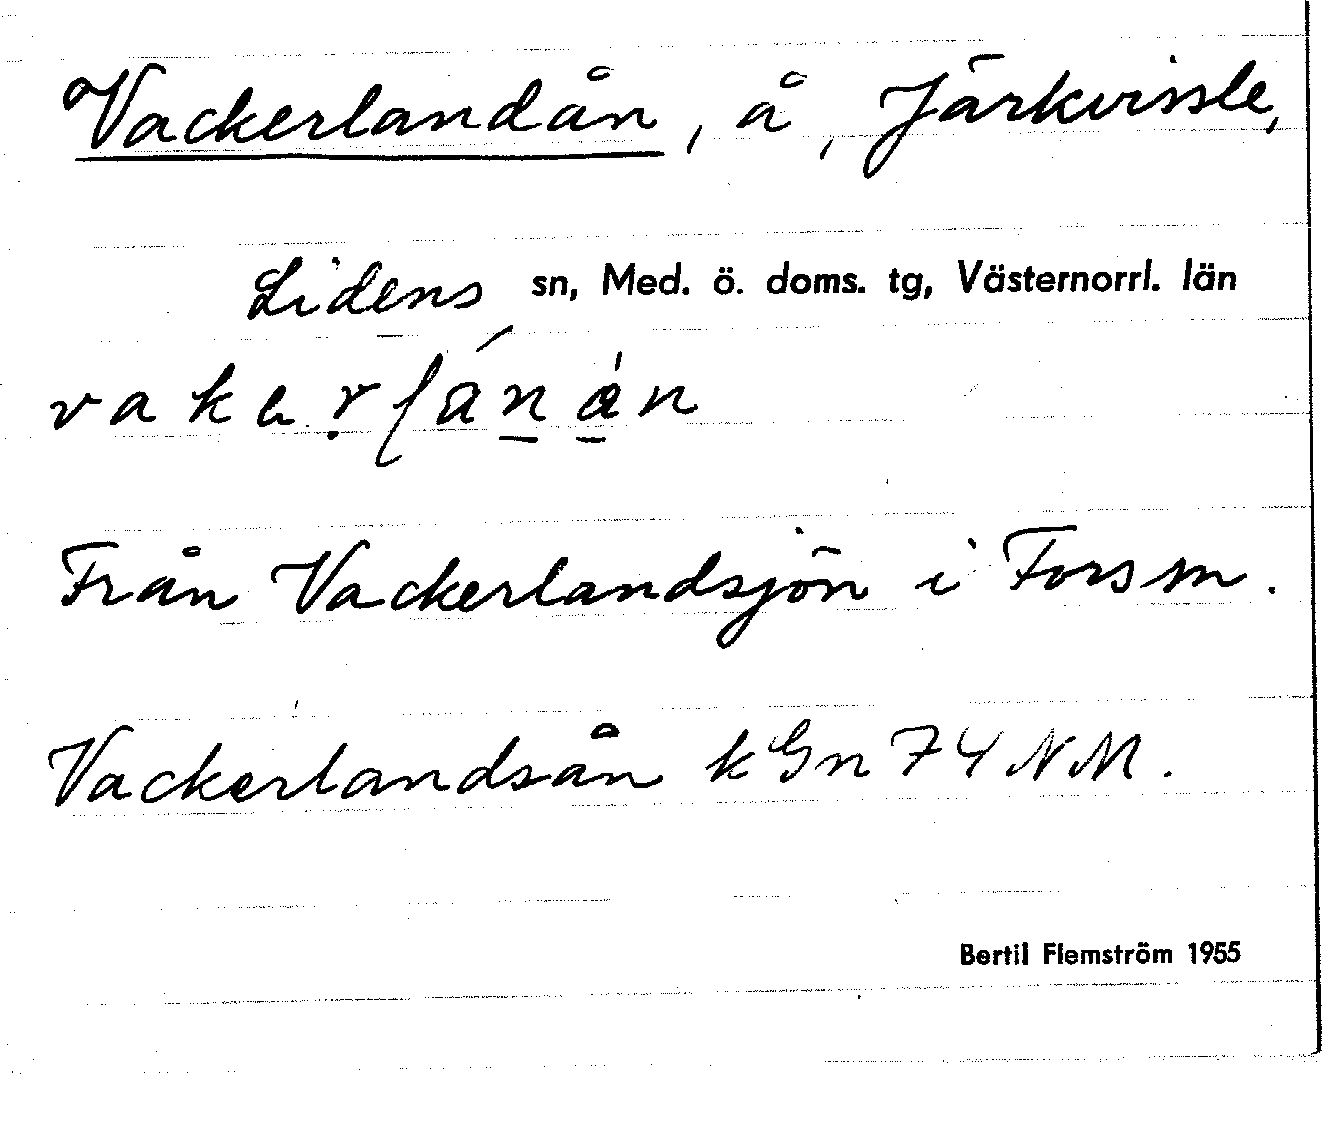 Vackerlandån, å, Järkvissle,
Lidens sn, Med. ö. doms. tg, Västernorrl. län
Från Vackerlandsjön i Fors sn.
Vackerlandsån kGn 74 NM.
Bertil Flemström 1955